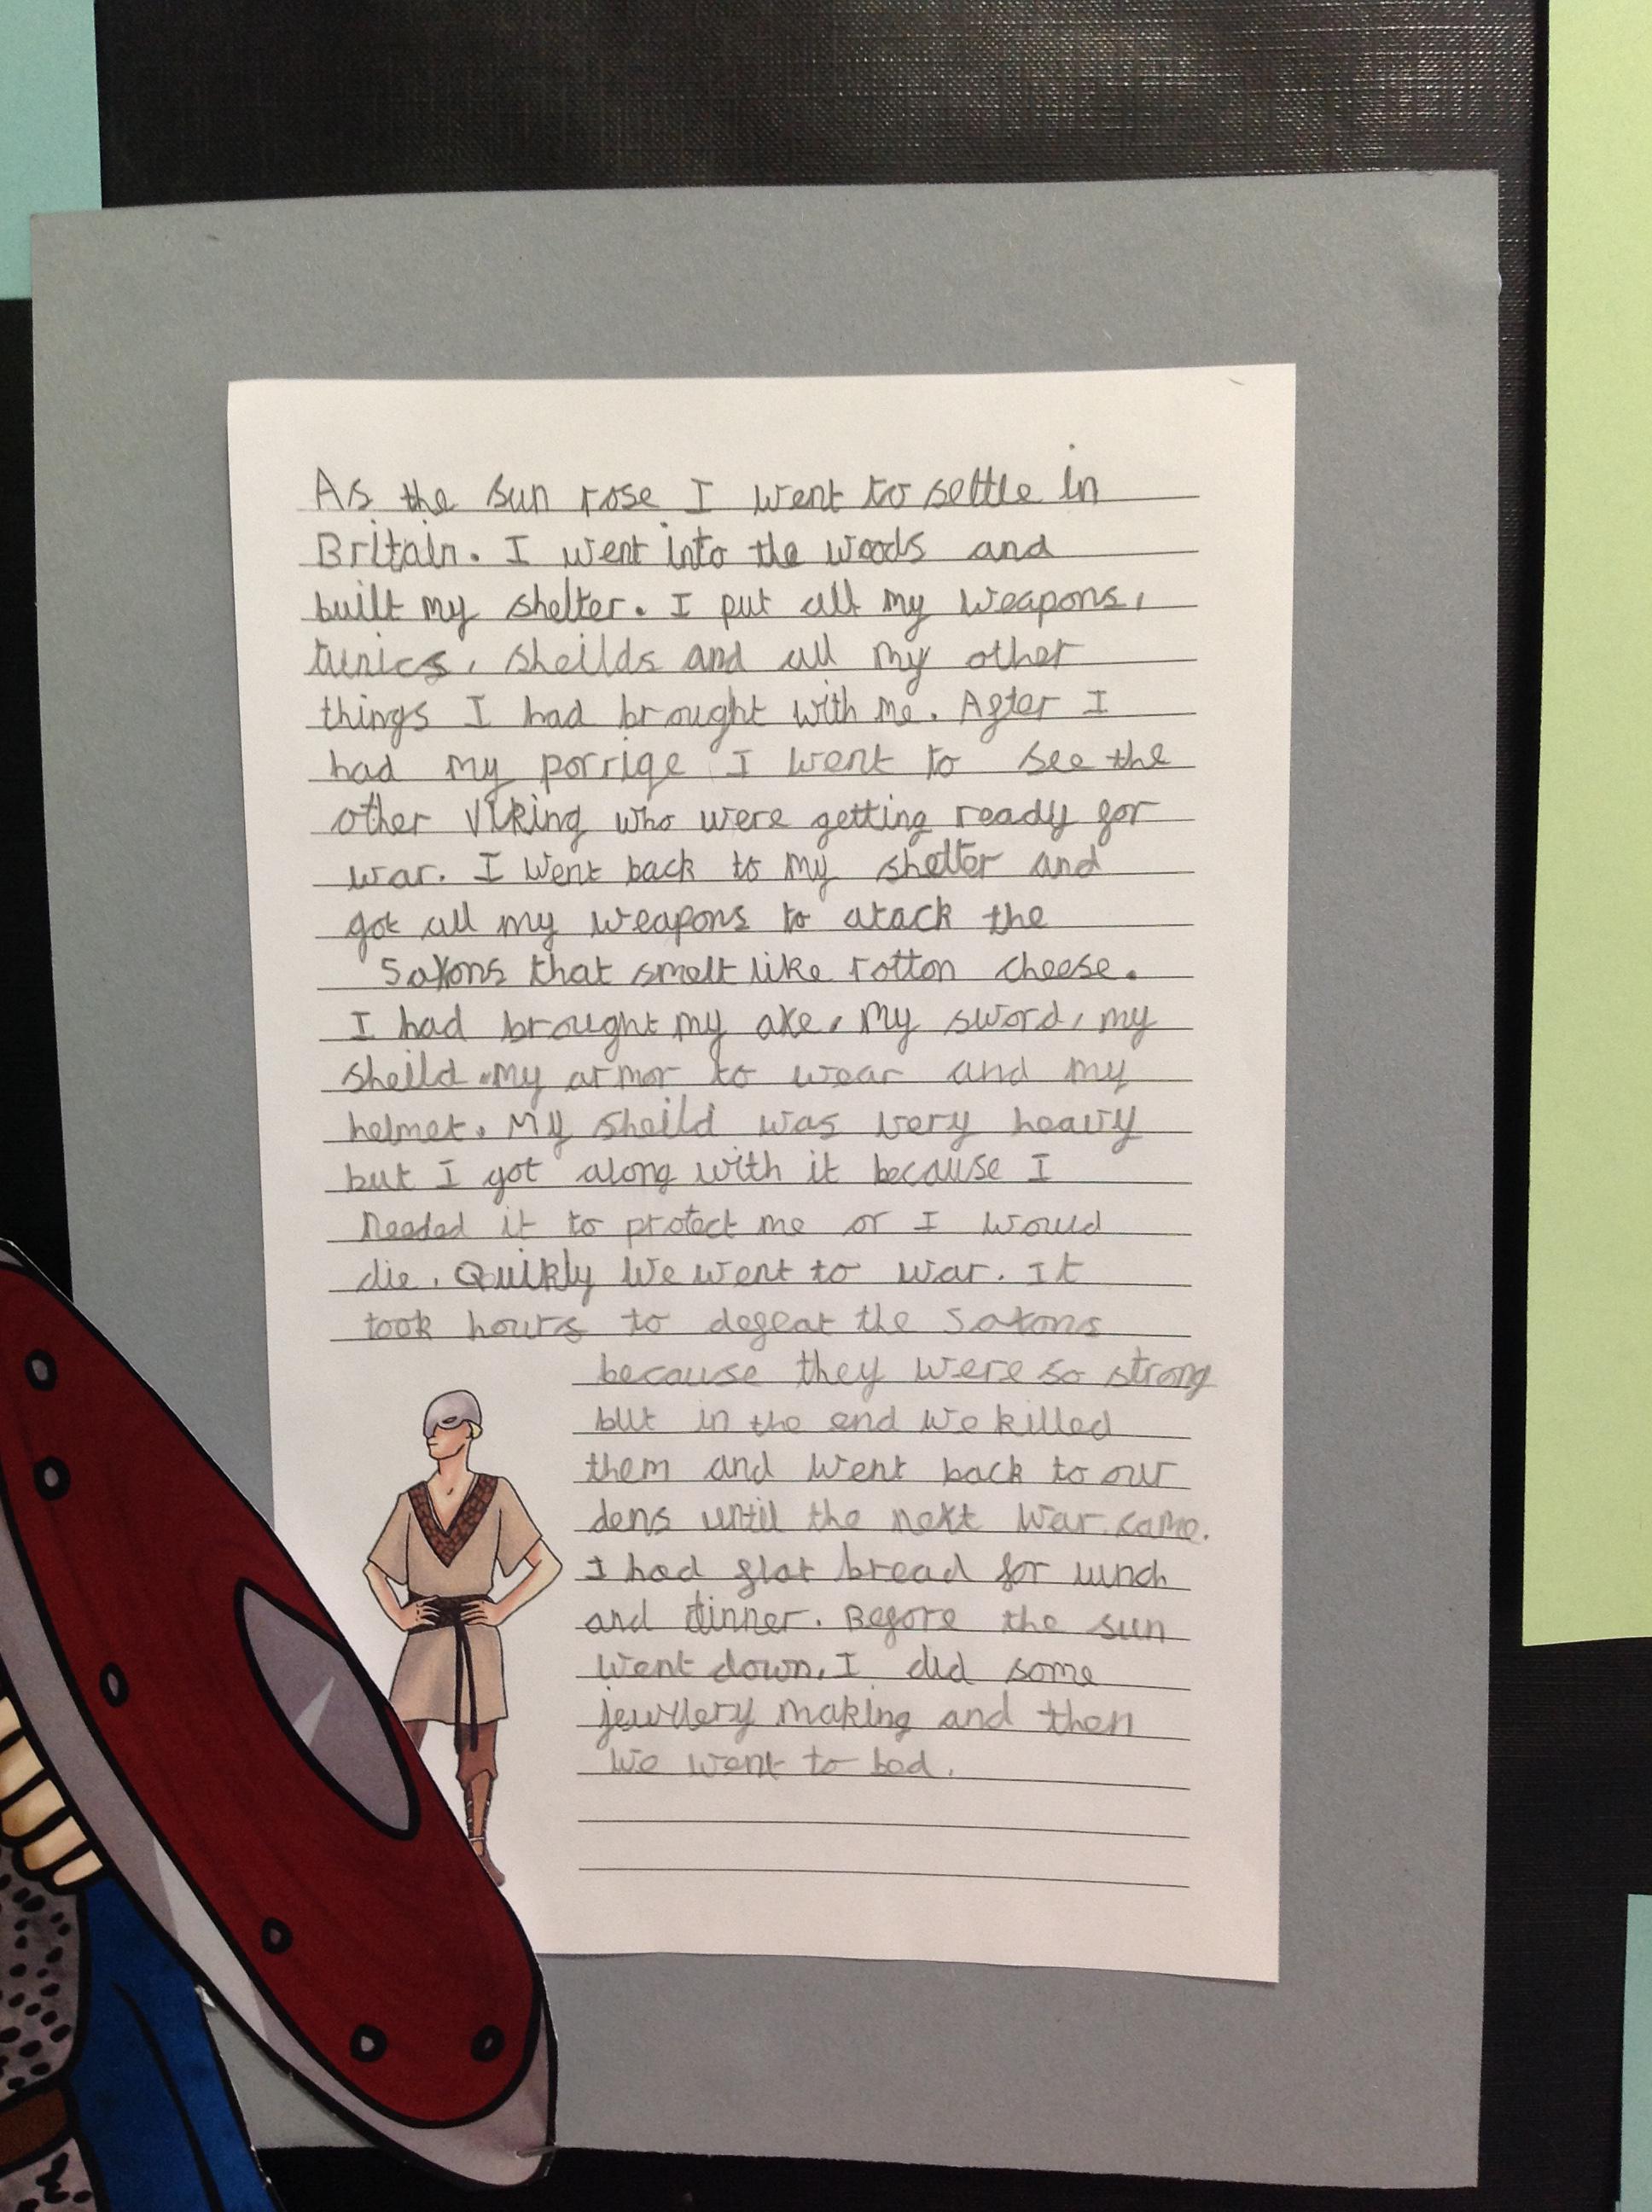 As the sun rose I went to settle in
Britain. I went into the woods and
built my shelter. I put all my weapons,
tunics, sheilds and all my other
things I had brought with me. After I
had my porrige I went to see the
other Viking who were getting ready for
war. I went back to my shelter and
got all my weapons to atack the
Saxons that smelt like rotton cheese.
I had brought my axe, my sword, my
sheild my armor to wear and my
helmet. My sheild was very heavy
but I got along with it because I
needed it to protect me or I would
die. Quikly we went to war. It
took hours to defeat the Saxons
because they were so strong
but in the end we killed
them and went back to our
dens until the next war came.
I had flat bread for lunch
and dinner. Before the sun
went down, I did some
jewllery making and then
we went to bed.